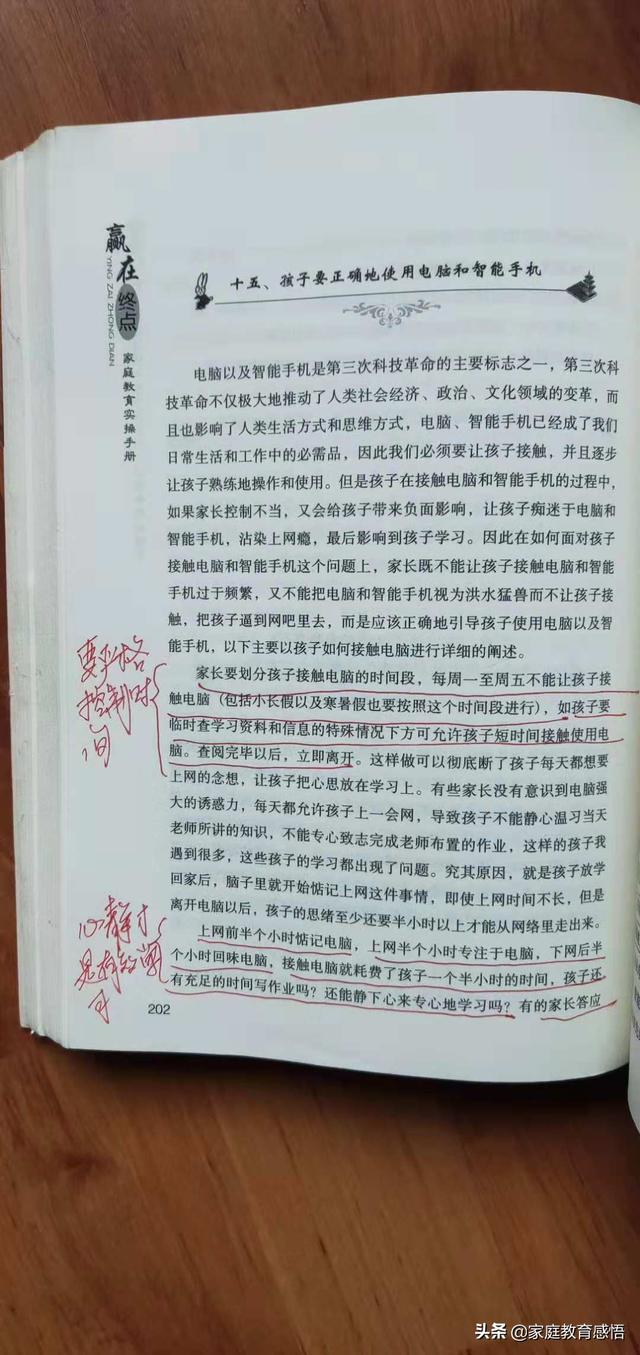 赢在
终点
YING ZAI ZHONG DIAN
家庭教育实操手册
十五、孩子要正确地使用电脑和智能手机
电脑以及智能手机是第三次科技革命的主要标志之一，第三次科
技革命不仅极大地推动了人类社会经济、政治、文化领域的变革，而
且也影响了人类生活方式和思维方式，电脑、智能手机已经成了我们
日常生活和工作中的必需品，因此我们必须要让孩子接触，并且逐步
让孩子熟练地操作和使用。但是孩子在接触电脑和智能手机的过程中，
如果家长控制不当，又会给孩子带来负面影响，让孩子痴迷于电脑和
智能手机，沾染上网瘾，最后影响到孩子学习。因此在如何面对孩子
接触电脑和智能手机这个问题上，家长既不能让孩子接触电脑和智能
手机过于频繁，又不能把电脑和智能手机视为洪水猛兽而不让孩子接
触，把孩子逼到网吧里去，而是应该正确地引导孩子使用电脑以及智
能手机，以下主要以孩子如何接触电脑进行详细的阐述。
家长要划分孩子接触电脑的时间段，每周一至周五不能让孩子接
触电脑（包括小长假以及寒暑假也要按照这个时间段进行），如孩子要
临时查学习资料和信息的特殊情况下方可允许孩子短时间接触使用电
脑。查阅完毕以后，立即离开。这样做可以彻底断了孩子每天都想要
上网的念想，让孩子把心思放在学习上。有些家长没有意识到电脑强
大的诱惑力，每天都允许孩子上一会网，导致孩子不能静心温习当天
老师所讲的知识，不能专心致志完成老师布置的作业，这样的孩子我
遇到很多，这些孩子的学习都出现了问题。究其原因，就是孩子放学
回家后，脑子里就开始惦记上网这件事情，即使上网时间不长，但是
离开电脑以后，孩子的思绪至少还要半小时以上才能从网络里走出来。
上网前半个小时惦记电脑，上网半个小时专注于电脑，下网后半
个小时回味电脑，接触电脑就耗费了孩子一个半小时的时间，孩子还
有充足的时间写作业吗？还能静下心来专心地学习吗？有的家长答应
要严格
控制时
间
心静才
202
头条 @家庭教育感悟